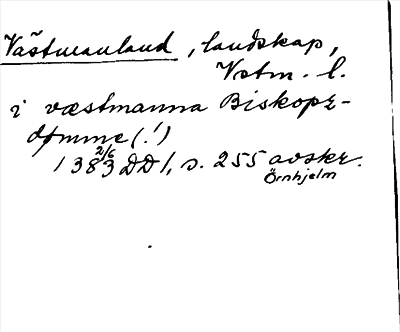 Västmanland, landskap,
Vstm. l.
i væstmanna Biskopz-
dømme (!)
1383 2/6 DD 1, s. 255 avskr.
Örnhjelm